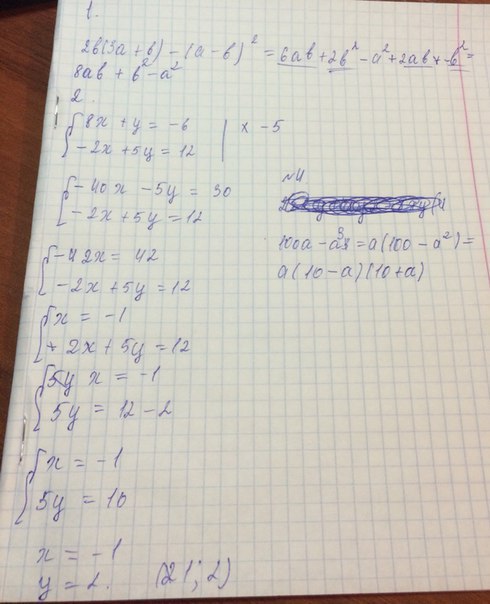 1.
2b(3a+b) - (a-b)² = 6ab + 2b² - a² + 2ab - b² =
8ab + b² - a²
2.
{8x + y = -6 | x -5
-2x + 5y = 12
{-40x - 5y = 30
-2x + 5y = 12
{-42x = 42
-2x + 5y = 12
{x = -1
2x + 5y = 12
{5y x = -1
5y = 12 - 2
{x = -1
5y = 10
x = -1
y = 2. (-1; 2)
№4
100a - a³ = a(100 - a²) =
a(10-a)(10+a)